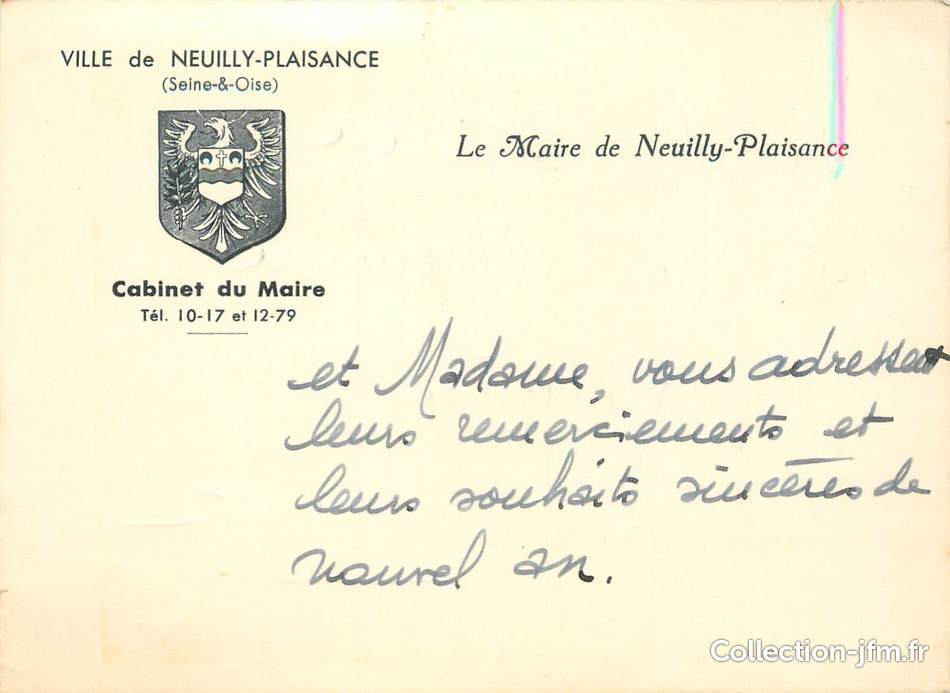 VILLE de NEUILLY-PLAISANCE
(Seine-&-Oise)
Cabinet du Maire
Tél. 10-17 et 12-79
Le Maire de Neuilly-Plaisance
et Madame, vous adressent
leurs remerciements et
leurs souhaits sincères de
nouvel an.
Collection-jfm.fr